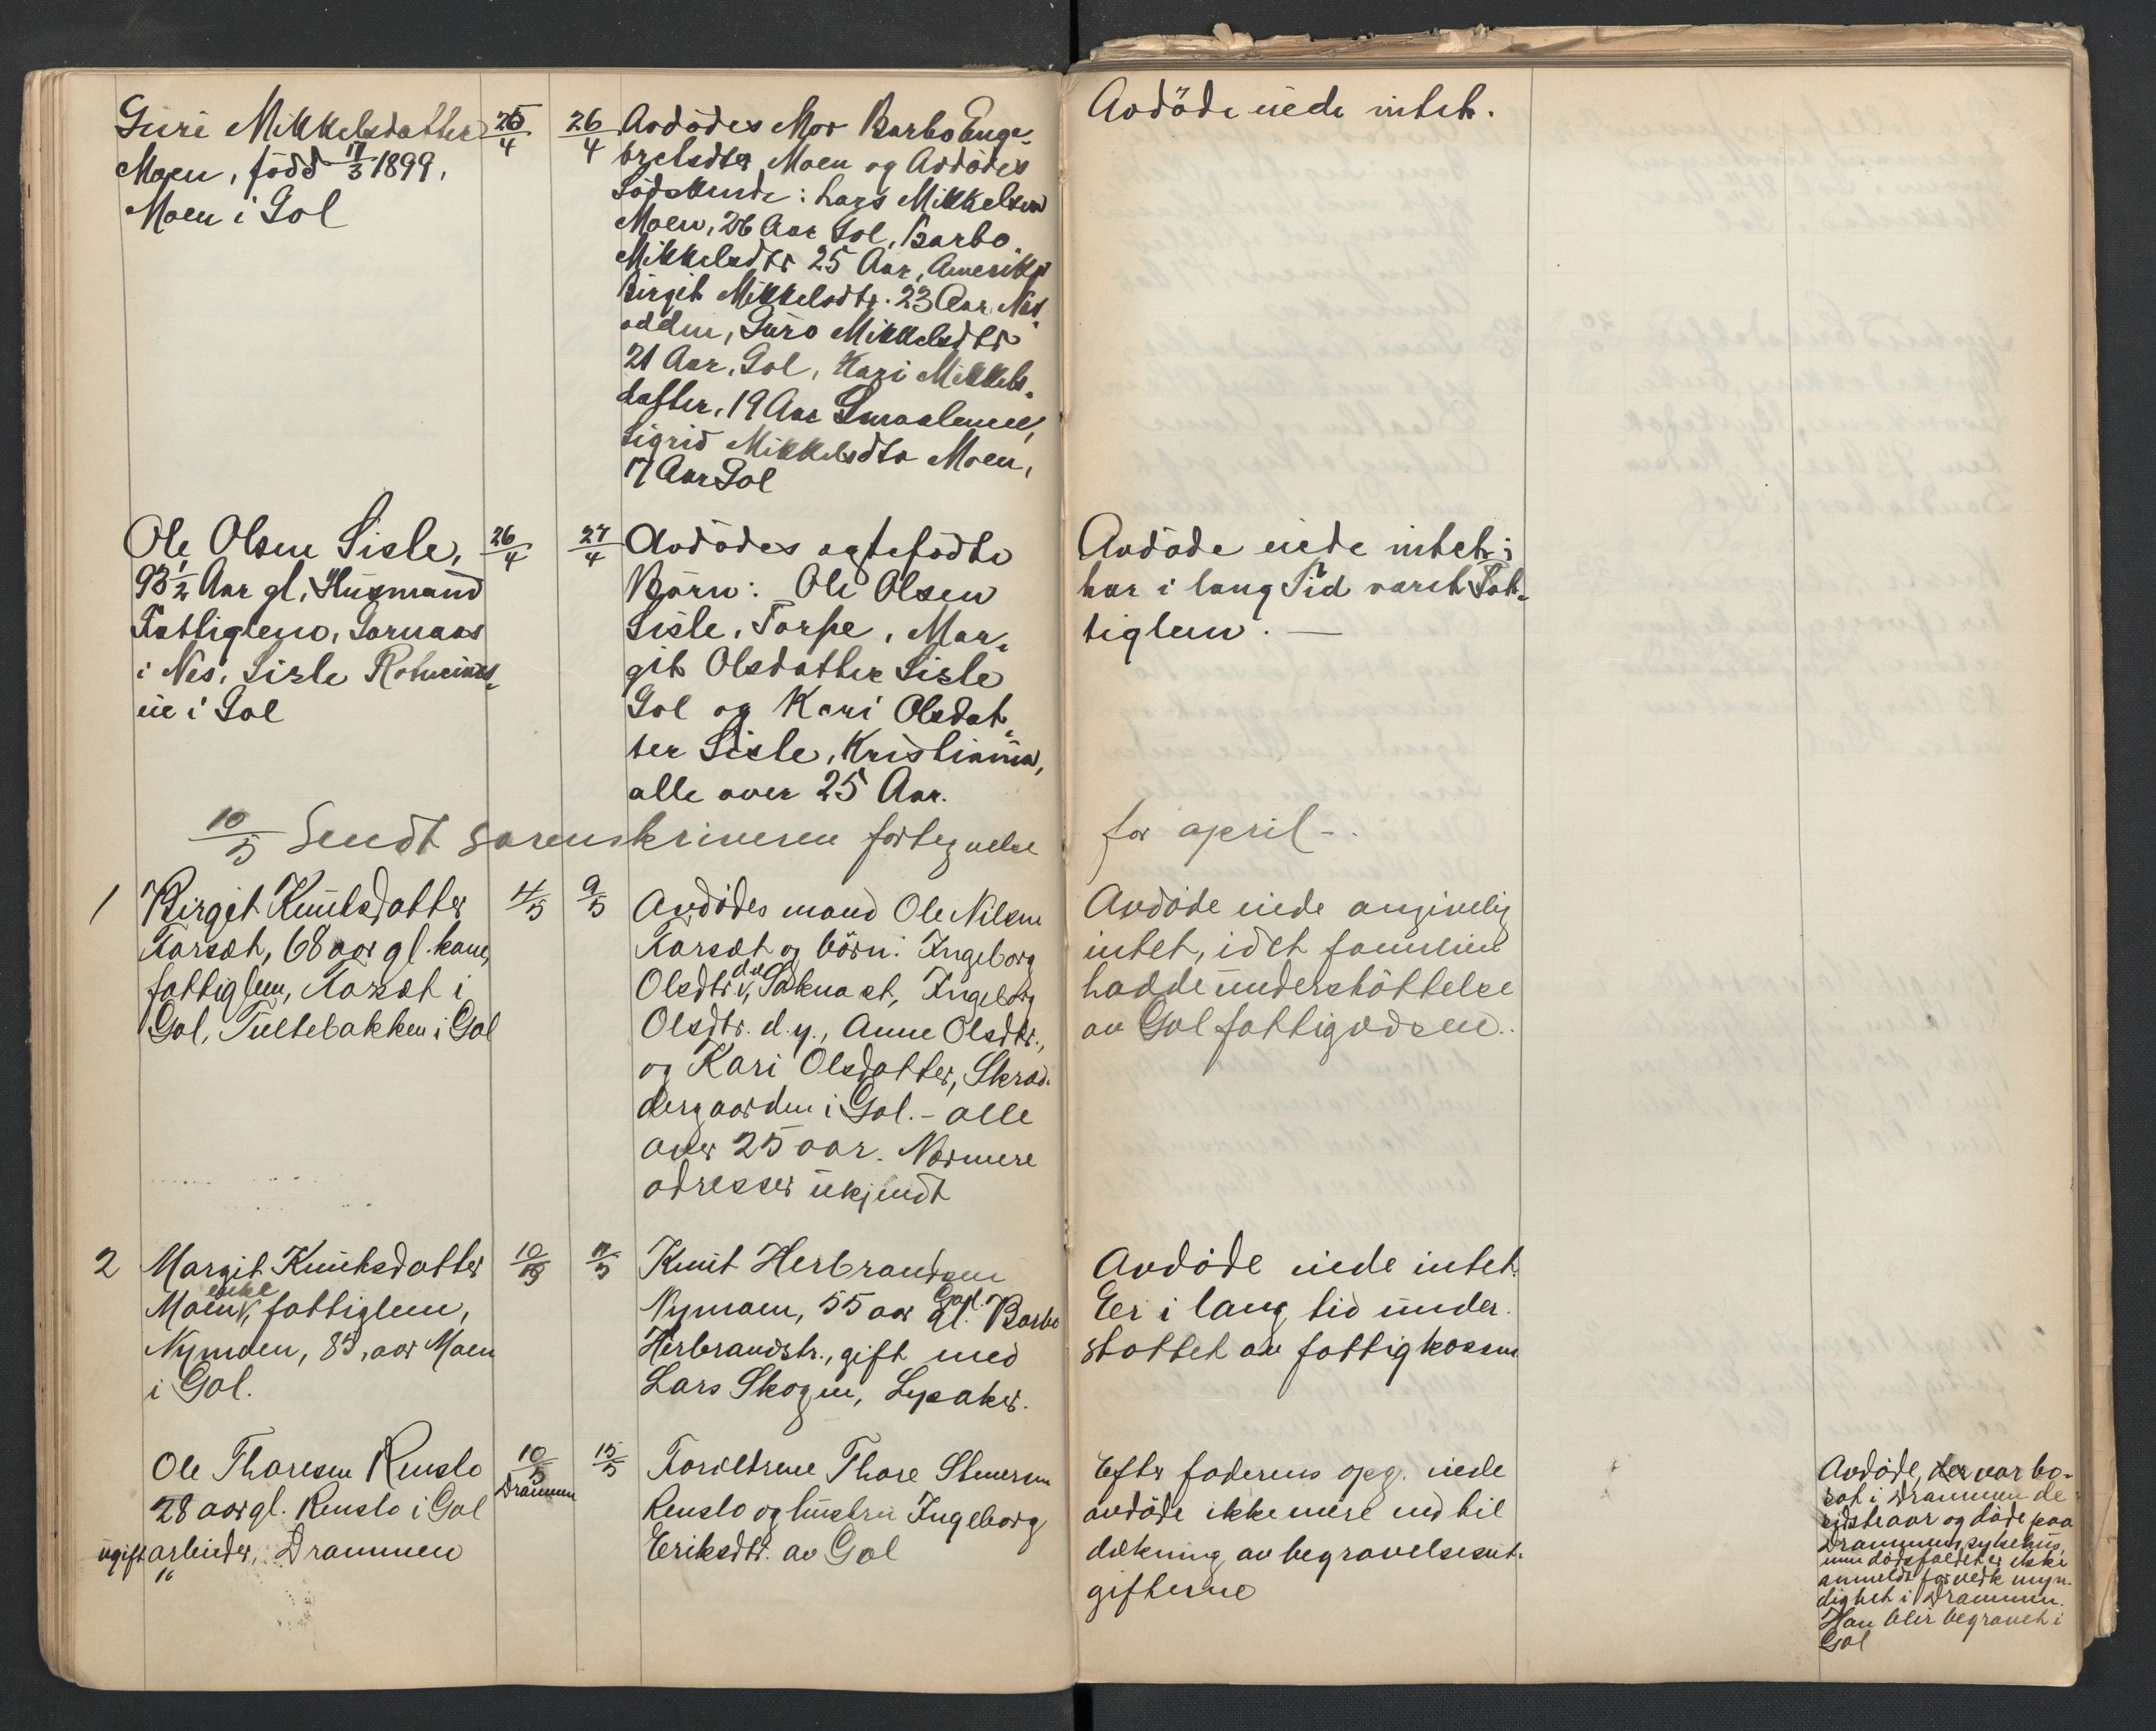 Guri Mikkelsdatter
Moen, född 17/3 1899,
Moen i Gol
25/4
26/4
Avdödes Mor Barbo Enge-
bretsdtr Moen og Avdödes
Södskende: Lars Mikkelsen
Moen, 26 Aar Gol, Barbo
Mikkelsdtr 25 Aar, Amerika
Birgit Mikkelsdtr. 23 Aar Nes
odden, Guro Mikkelsdtr
21 Aar, Gol, Kari Mikkels-
datter, 19 Aar
Sigrid Mikkelsdtr Moen,
17 Aar Gol
Avdöde eiede intet.
Ole Olsen Sisle,
93 1/2 Aar gl, Husmand
Fattiglem, Garnaas
i Nes, Sisle Rotneims-
eie i Gol
26/4
27/4
Avdödes egtefödte
Börn: Ole Olsen
Sisle, Torpe, Mar-
git Olsdatter Sisle
Gol og Kari Olsdat-
ter Sisle, Kristiania,
alle over 25 Aar.
Avdöde eiede intet;
har i lang Tid været Fat-
tiglem. —
10/5 Sendt sorenskriveren fortegnelse
for april -.
1
Birgit Knutsdatter
Karsæt, 68 aar gl. kone,
fattiglem, Karsæt i
Gol, Tultebakken i Gol
4/5
9/5
Avdödes mand Ole Nilsen
Karsæt og börn: Ingeborg
Olsdtr d.e., Ingeborg
Olsdtr. d.y., Anne Olsdtr.,
og Kari Olsdatter, Skræd-
dergaarden i Gol. - alle
over 25 aar. Nærmere
adresser ukjendt
Avdöde eiede angivelig
intet, idet familien
hadde understöttelse
av Gol fattigvæsen.
2
Margit Knutsdatter
Moen, enke, fattiglem,
Nymoen, 85, aar Moen
i Gol.
10/5
11/5
Knut Herbrandsen
Nymoen, 55 aar gl. Gol. Barbo
Herbrandstr., gift med
Lars Skogen, Lysaker.
Avdöde eiede intet.
Er i lang tid under-
stöttet av fattigkassen
Ole Thoresen Renslo
28 aar gl. Renslo i Gol
ugift arbeider, Drammen
"
10/5
Drammen
15/5
Forældrene Thore Steinersen
Renslo og hustru Ingeborg
Eriksdtr. av Gol
Efter faderens opg. eiede
avdöde ikke mere end til
dækning av begravelsesut-
gifterne
Avdöde, der var bo-
sat i Drammen de
sidste aar og döde paa
Drammens sykehus,
men dödsfaldet er ikke
anmeldt for vedk myn-
dighet i Drammen.
Han blir begravet i
Gol